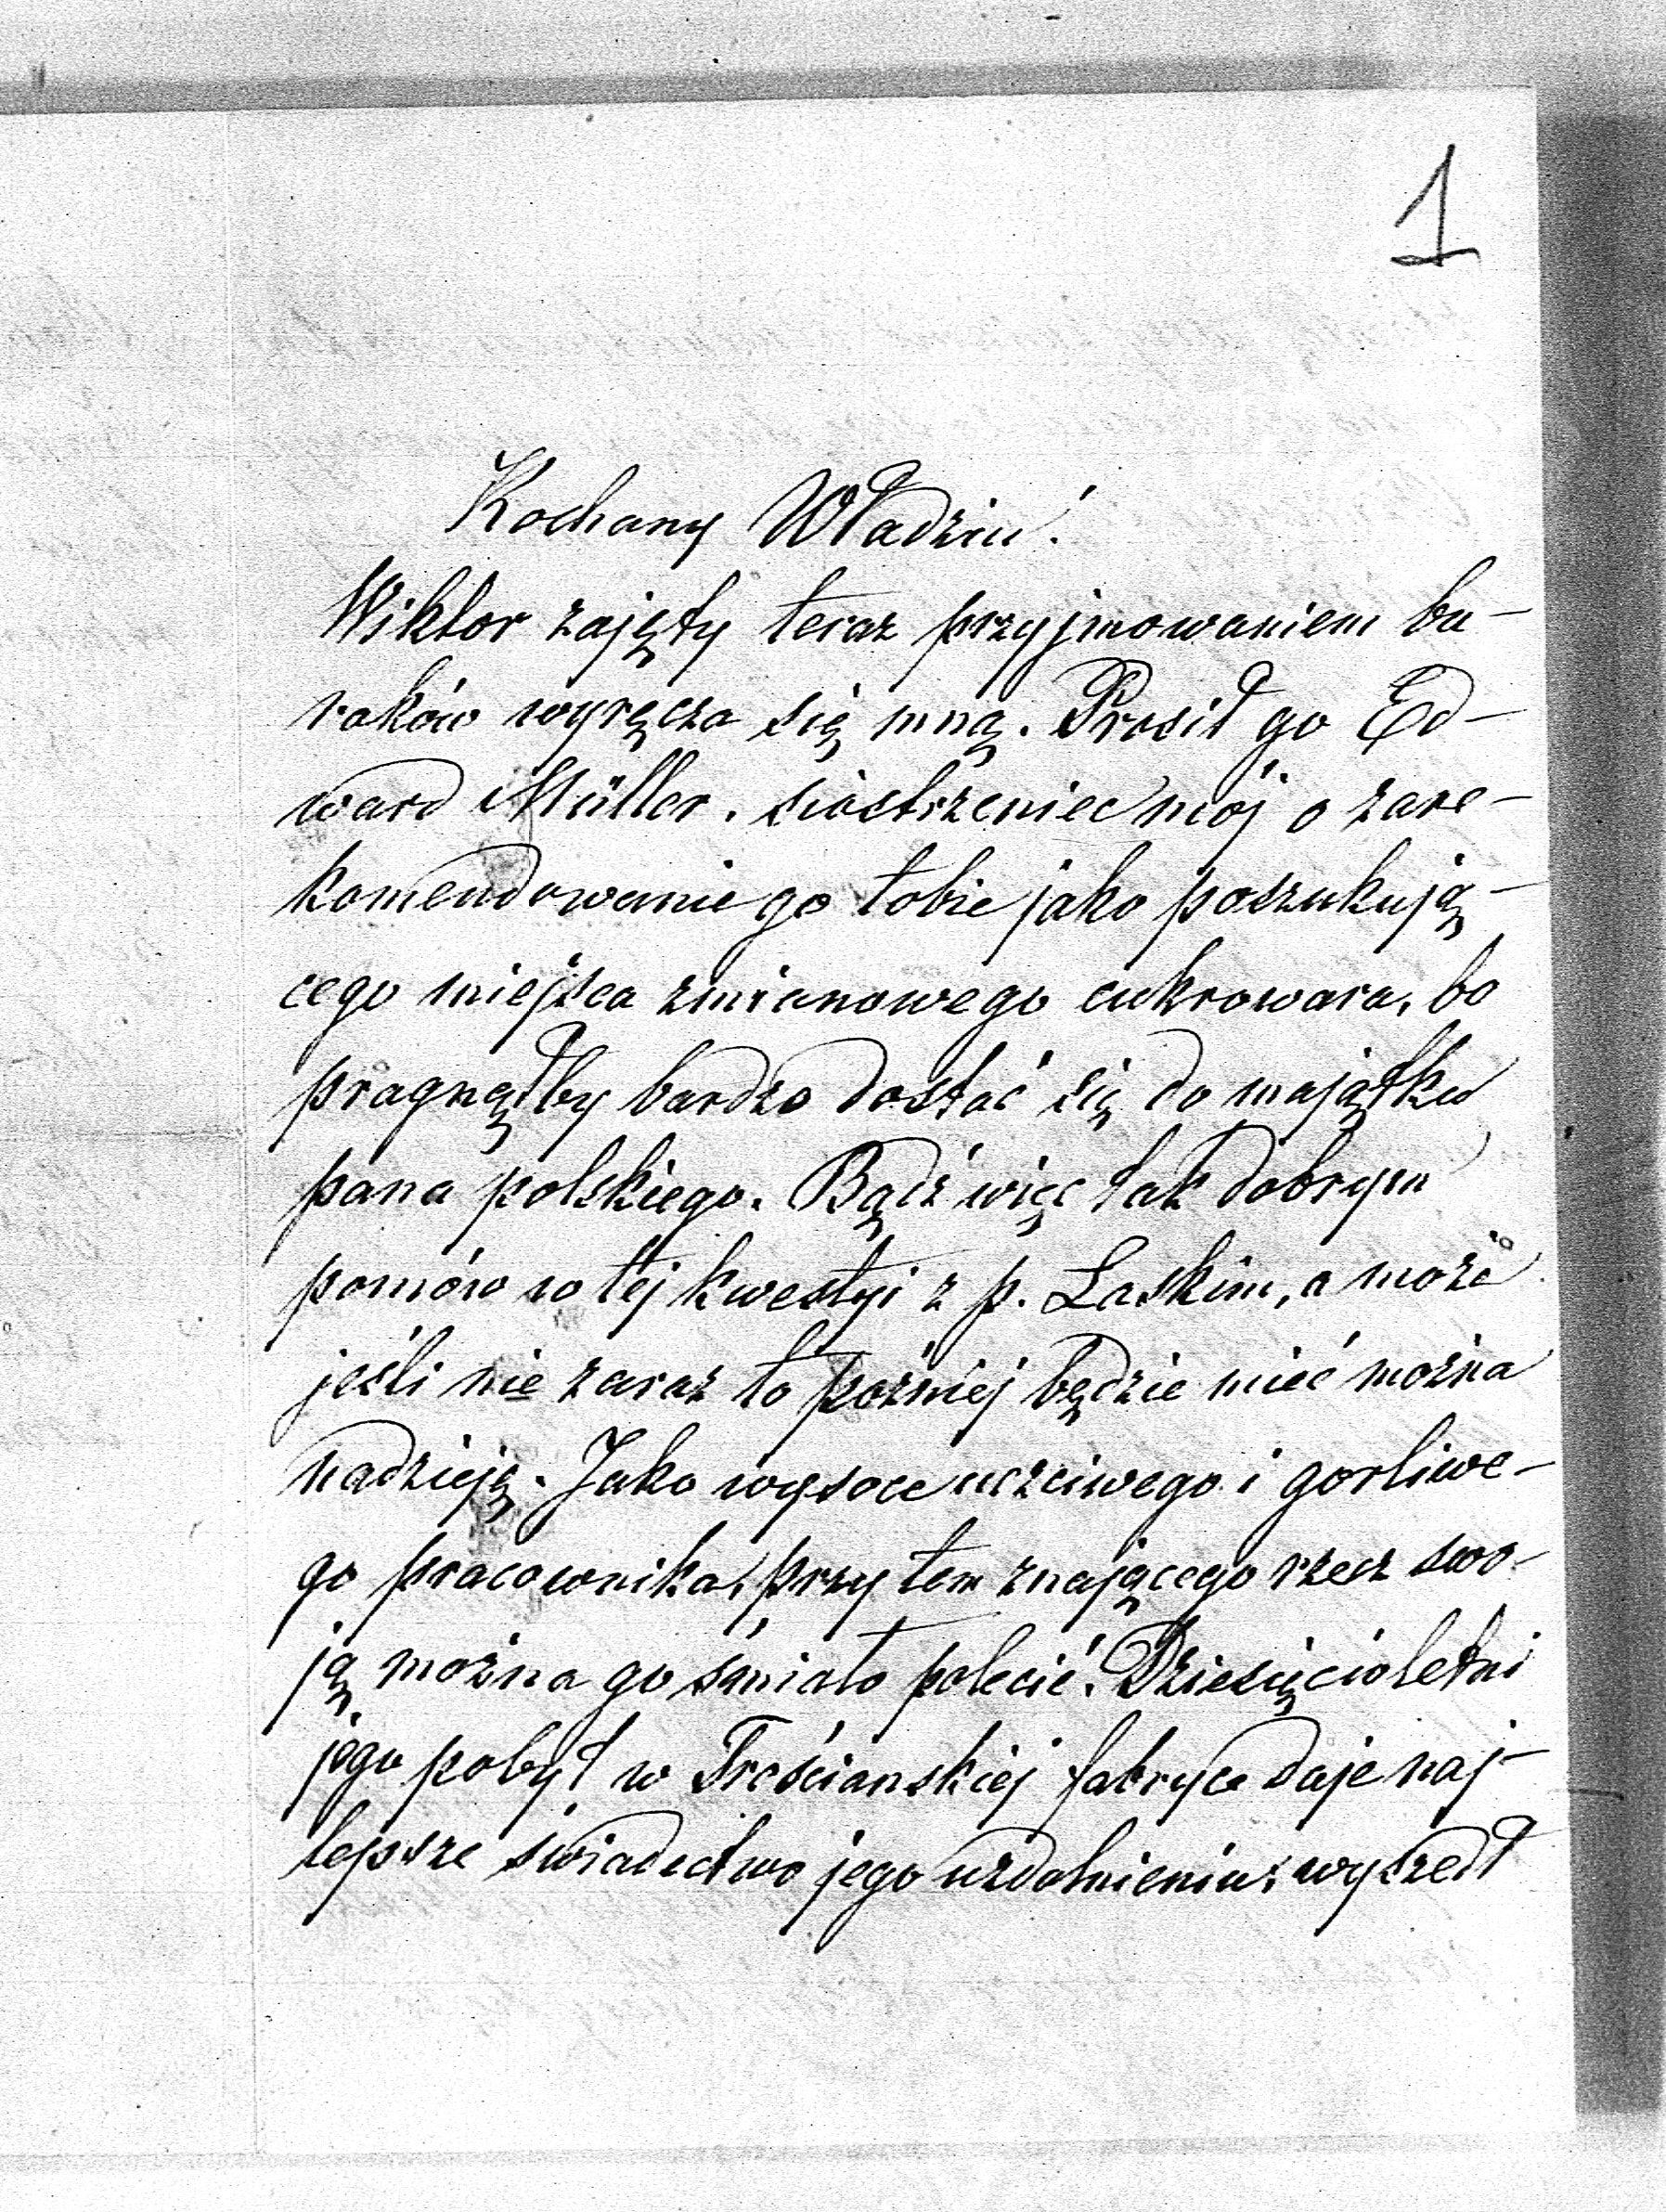 1
Kochany Władziu!
Wiktor zajęty teraz przyjmowaniem bu-
raków wyręcza się mną. Prosił go Ed-
ward Müller, siostrzeniec mój o zare-
komendowanie go tobie jako poszukują-
cego miejsca zmianowego cukrowara, bo
pragnąłby bardzo dostać się do majątku
pana polskiego. Bądź więc tak dobrym
pomów w tej kwestyi z p. Laskim, a może
jeśli nie zaraz to poźniej będzie mieć można
nadzieję. Jako wysoce uczciwego i gorliwe-
go pracownika, przy tem znającego rzecz swo-
ją można go śmiało polecić. Dziesięcioletni
jego pobyt w Trościanskiej fabryce daje naj-
lepsze świadectwo jego uzdolnieniu; wyszedł